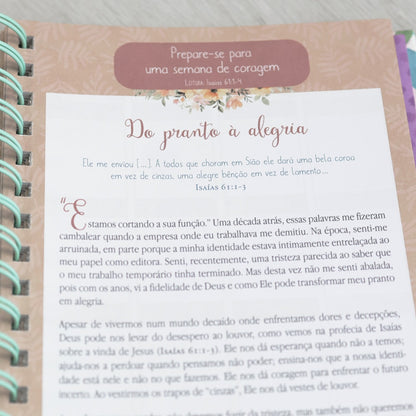 Prepare-se para
uma semana de coragem
Leitura: Isaías 61:1-4
Do pranto à alegria
Ele me enviou [...] A todos que choram em Sião ele dará uma bela coroa
em vez de cinzas, uma alegre bênção em vez de lamento...
Isaías 61:1-3
"Estamos cortando a sua função." Uma década atrás, essas palavras me fizeram
cambalear quando a empresa onde eu trabalhava me demitiu. Na época, senti-me
arruinada, em parte porque a minha identidade estava intimamente entrelaçada ao
meu papel como editora. Senti, recentemente, uma tristeza parecida ao saber que
o meu trabalho temporário tinha terminado. Mas desta vez não me senti abalada,
pois com os anos, vi a fidelidade de Deus e como Ele pode transformar meu pranto
em alegria.
Apesar de vivermos num mundo decaído onde enfrentamos dores e decepções,
Deus pode nos levar do desespero ao louvor, como vemos na profecia de Isaías
sobre a vinda de Jesus (Isaías 61:1-3). Ele nos dá esperança quando não a temos;
ajuda-nos a perdoar quando pensamos não poder; ensina-nos que a nossa identi-
dade está nele e não no que fazemos. Ele nos dá coragem para enfrentar o futuro
incerto. Ao vestirmos os trapos de "cinzas", Ele nos dá vestes de louvor.